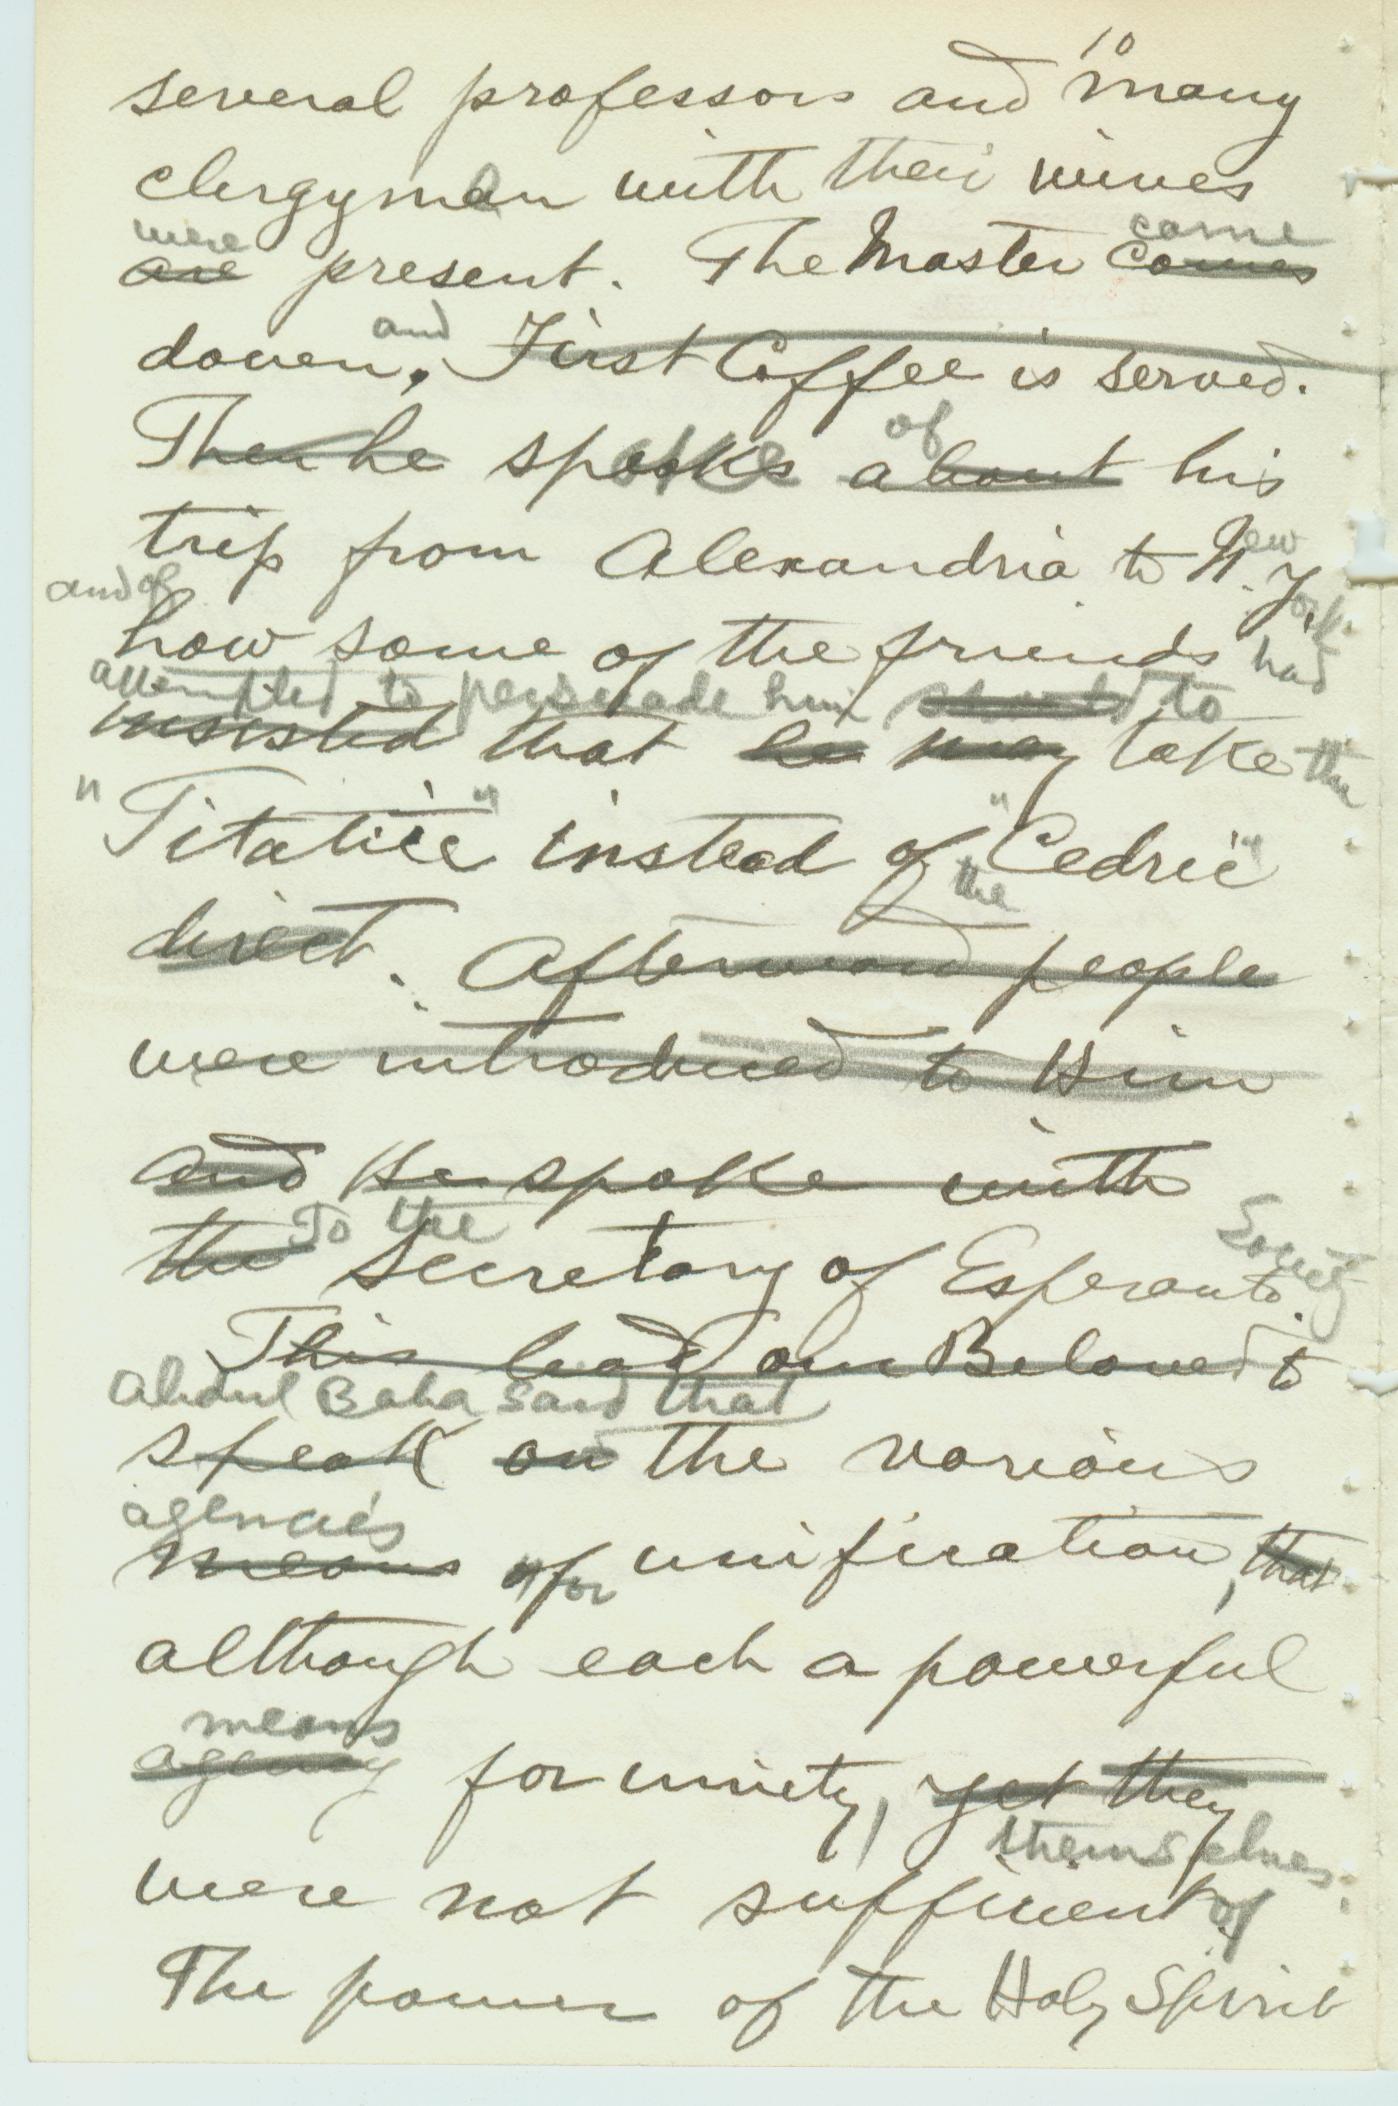 10
several professors and many
clergymen with their wives
were
are present. The Master comes came
down, and First Coffee is served.
Then he spoke of about his
trip from Alexandria to New York,
and of
how some of the friends had
attempted to persuade him should to
insisted that he may take the
"Titatice" instead of "Cedric"
the
direct. Afterward people
were introduced to Him
and He spoke with
the To the Secretary of Esperanto Society.
This lead our Beloved to
Abdul Baha said that
speak on the various
agencies
means of for unification, that
although each a powerful
means
agency for uniety, yet they
themselves
were not sufficient of
The power of the Holy Spirit